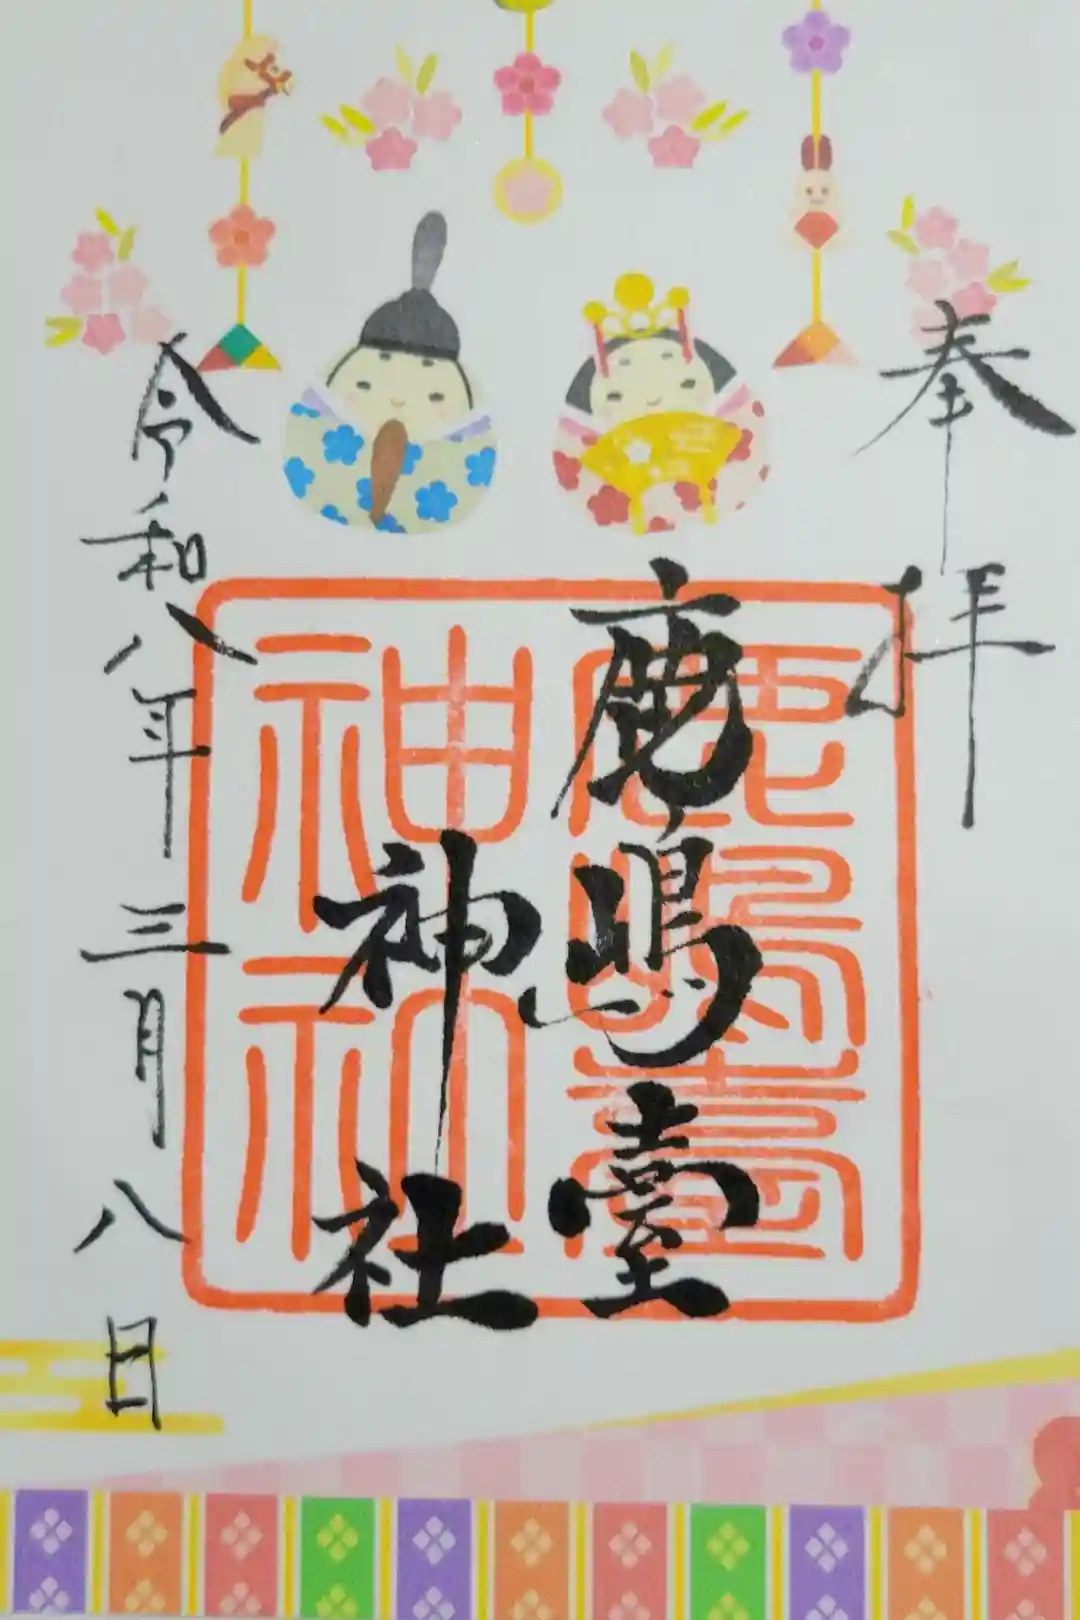 奉拝
鹿嶋臺
神社
令和八年三月八日
鹿嶋臺
神社